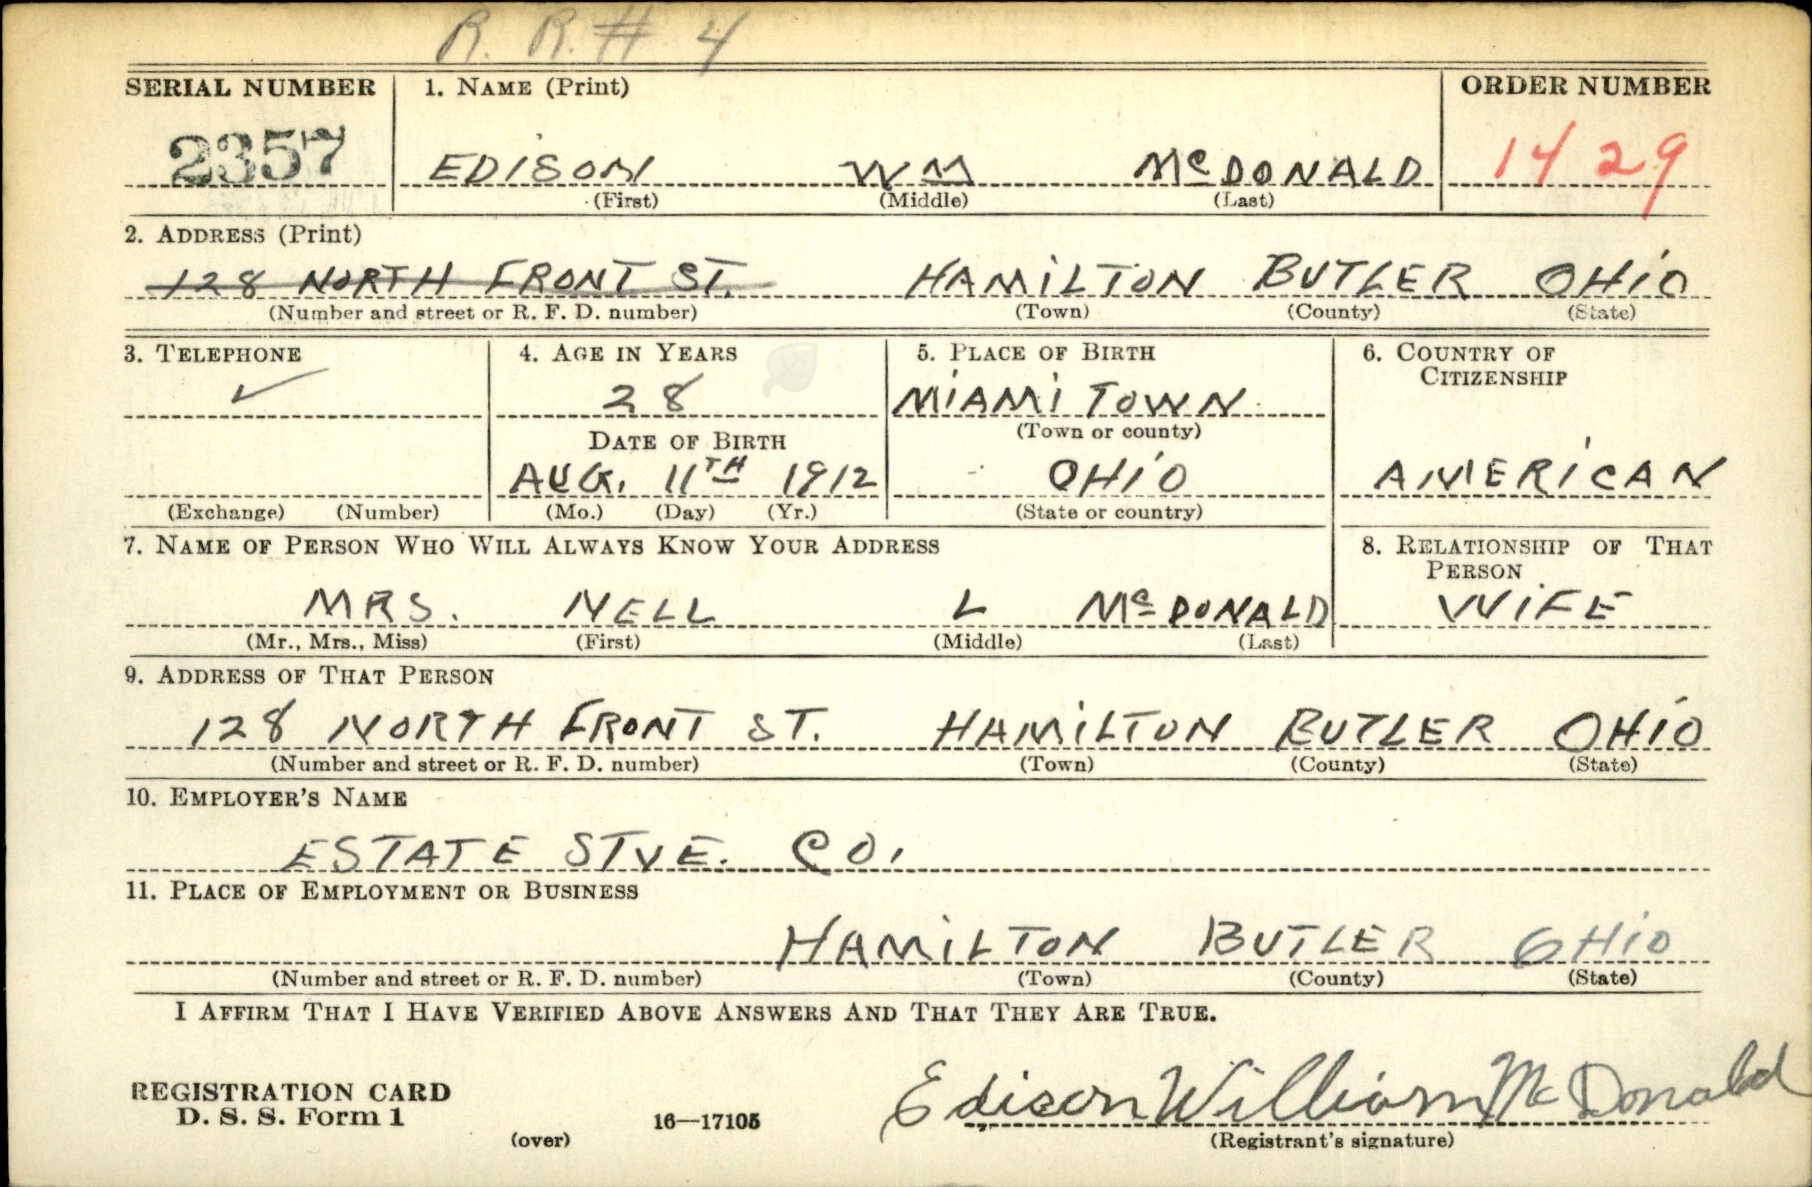 R. R. # 4
SERIAL NUMBER 1. NAME (Print) ORDER NUMBER
2357 EDISON WM McDONALD 1429
(First) (Middle) (Last)
2. ADDRESS (Print)
128 NORTH FRONT ST. HAMILTON BUTLER OHIO
(Number and street or R. F. D. number) (Town) (County) (State)
3. TELEPHONE 4. AGE IN YEARS 5. PLACE OF BIRTH 6. COUNTRY OF
CITIZENSHIP
✓ 28 MIAMI TOWN
DATE OF BIRTH (Town or county)
AUG. 11TH 1912 OHIO AMERICAN
(Exchange) (Number) (Mo.) (Day) (Yr.) (State or country)
7. NAME OF PERSON WHO WILL ALWAYS KNOW YOUR ADDRESS 8. RELATIONSHIP OF THAT
PERSON
MRS. NELL L McDONALD WIFE
(Mr., Mrs., Miss) (First) (Middle) (Last)
9. ADDRESS OF THAT PERSON
128 NORTH FRONT ST. HAMILTON BUTLER OHIO
(Number and street or R. F. D. number) (Town) (County) (State)
10. EMPLOYER'S NAME
ESTATE STVE. CO.
11. PLACE OF EMPLOYMENT OR BUSINESS
HAMILTON BUTLER OHIO
(Number and street or R. F. D. number) (Town) (County) (State)
I AFFIRM THAT I HAVE VERIFIED ABOVE ANSWERS AND THAT THEY ARE TRUE.
REGISTRATION CARD
D. S. S. Form 1 16—17105 Edison William McDonald
(over) (Registrant's signature)